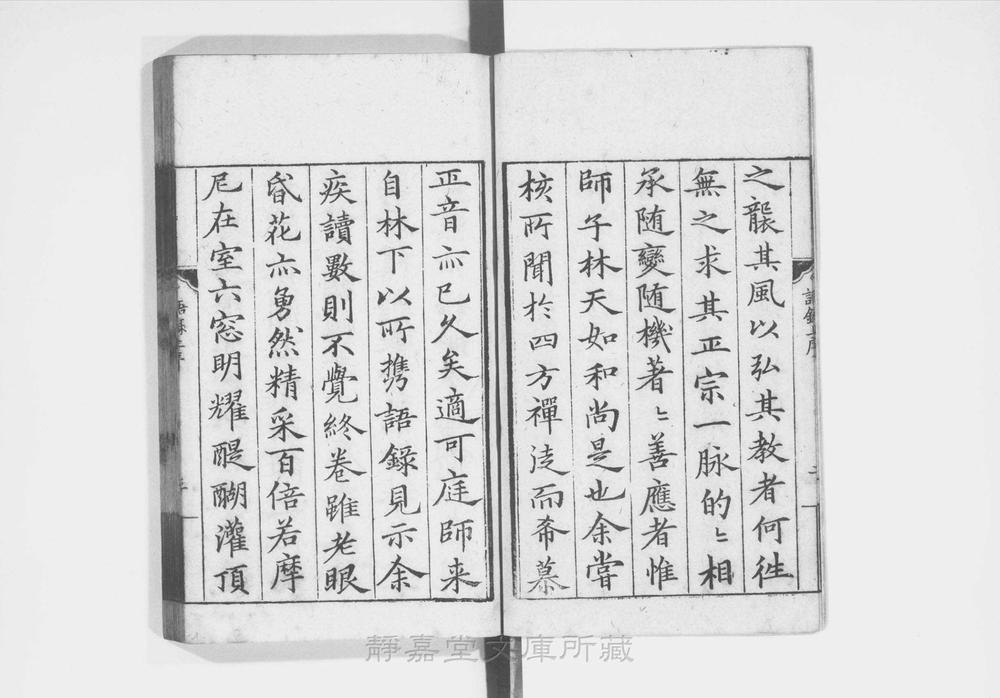 之襲其風以弘其教者何徃
無之求其正宗一脉的〻相
承随變随機著〻善應者惟
師子林天如和尚是也余嘗
核所聞扵四方禪徒而希慕
正音亦已久矣適可庭師来
自林下以所携語録見示余
疾讀數則不覺終卷雖老眼
昏花亦勇然精采百倍若摩
尼在室六窓明耀醍醐灌頂
語録序
靜嘉堂文庫所藏